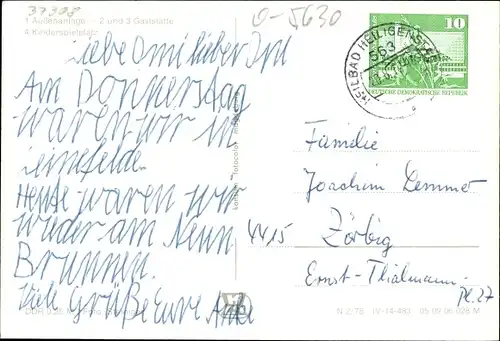 37308
0-5630
1 Außenanlage 2 und 3 Gaststätte
4 Kinderspielplatz
Liebe Omi lieber
Am Donnerstag
waren wir in
Leinefelde.
Heute waren wir
wieder am Neun
Brunnen.
Viele Grüße Eure Anke
HEILBAD HEILIGENSTADT
563
10
DEUTSCHE DEMOKRATISCHE REPUBLIK
Familie
Joachim Demmer
4415 Zörbig
Ernst-Thälmann-
Pl. 27
N 2/78 IV-14-483 05 09 06 026 M